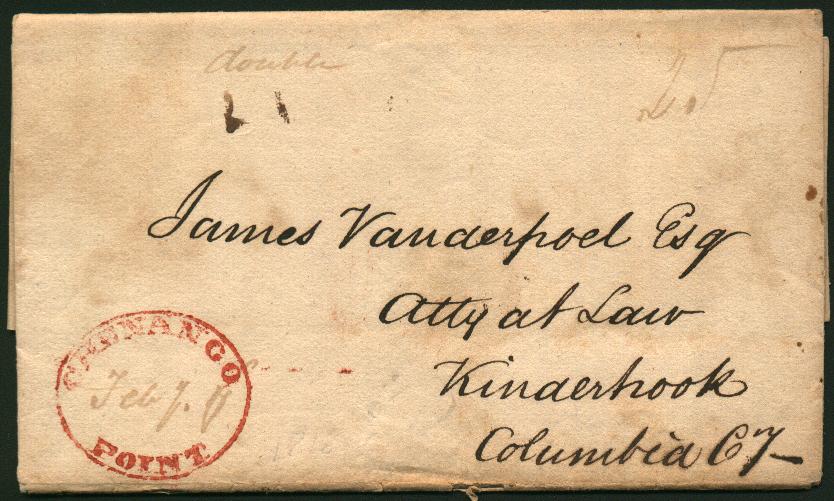 double
25
James Vanderpoel Esq
Atty at Law
Kinderhook
Columbia Cy
CHENANGO
Feb 7.
POINT